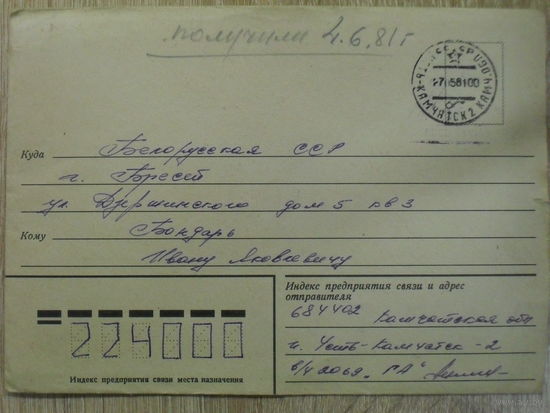 получили 4.6.81 г
КАМЧАТСК 2
Куда Белорусская ССР
г. Брест
ул. Дзержинского дом 5 кв 3
Кому Бондарь
Ивану Яковлевичу
Индекс предприятия связи и адрес
отправителя
684402 Камчатская обл
п. Усть-Камчатск-2
в/ч 2069 "
224000
Индекс предприятия связи места назначения